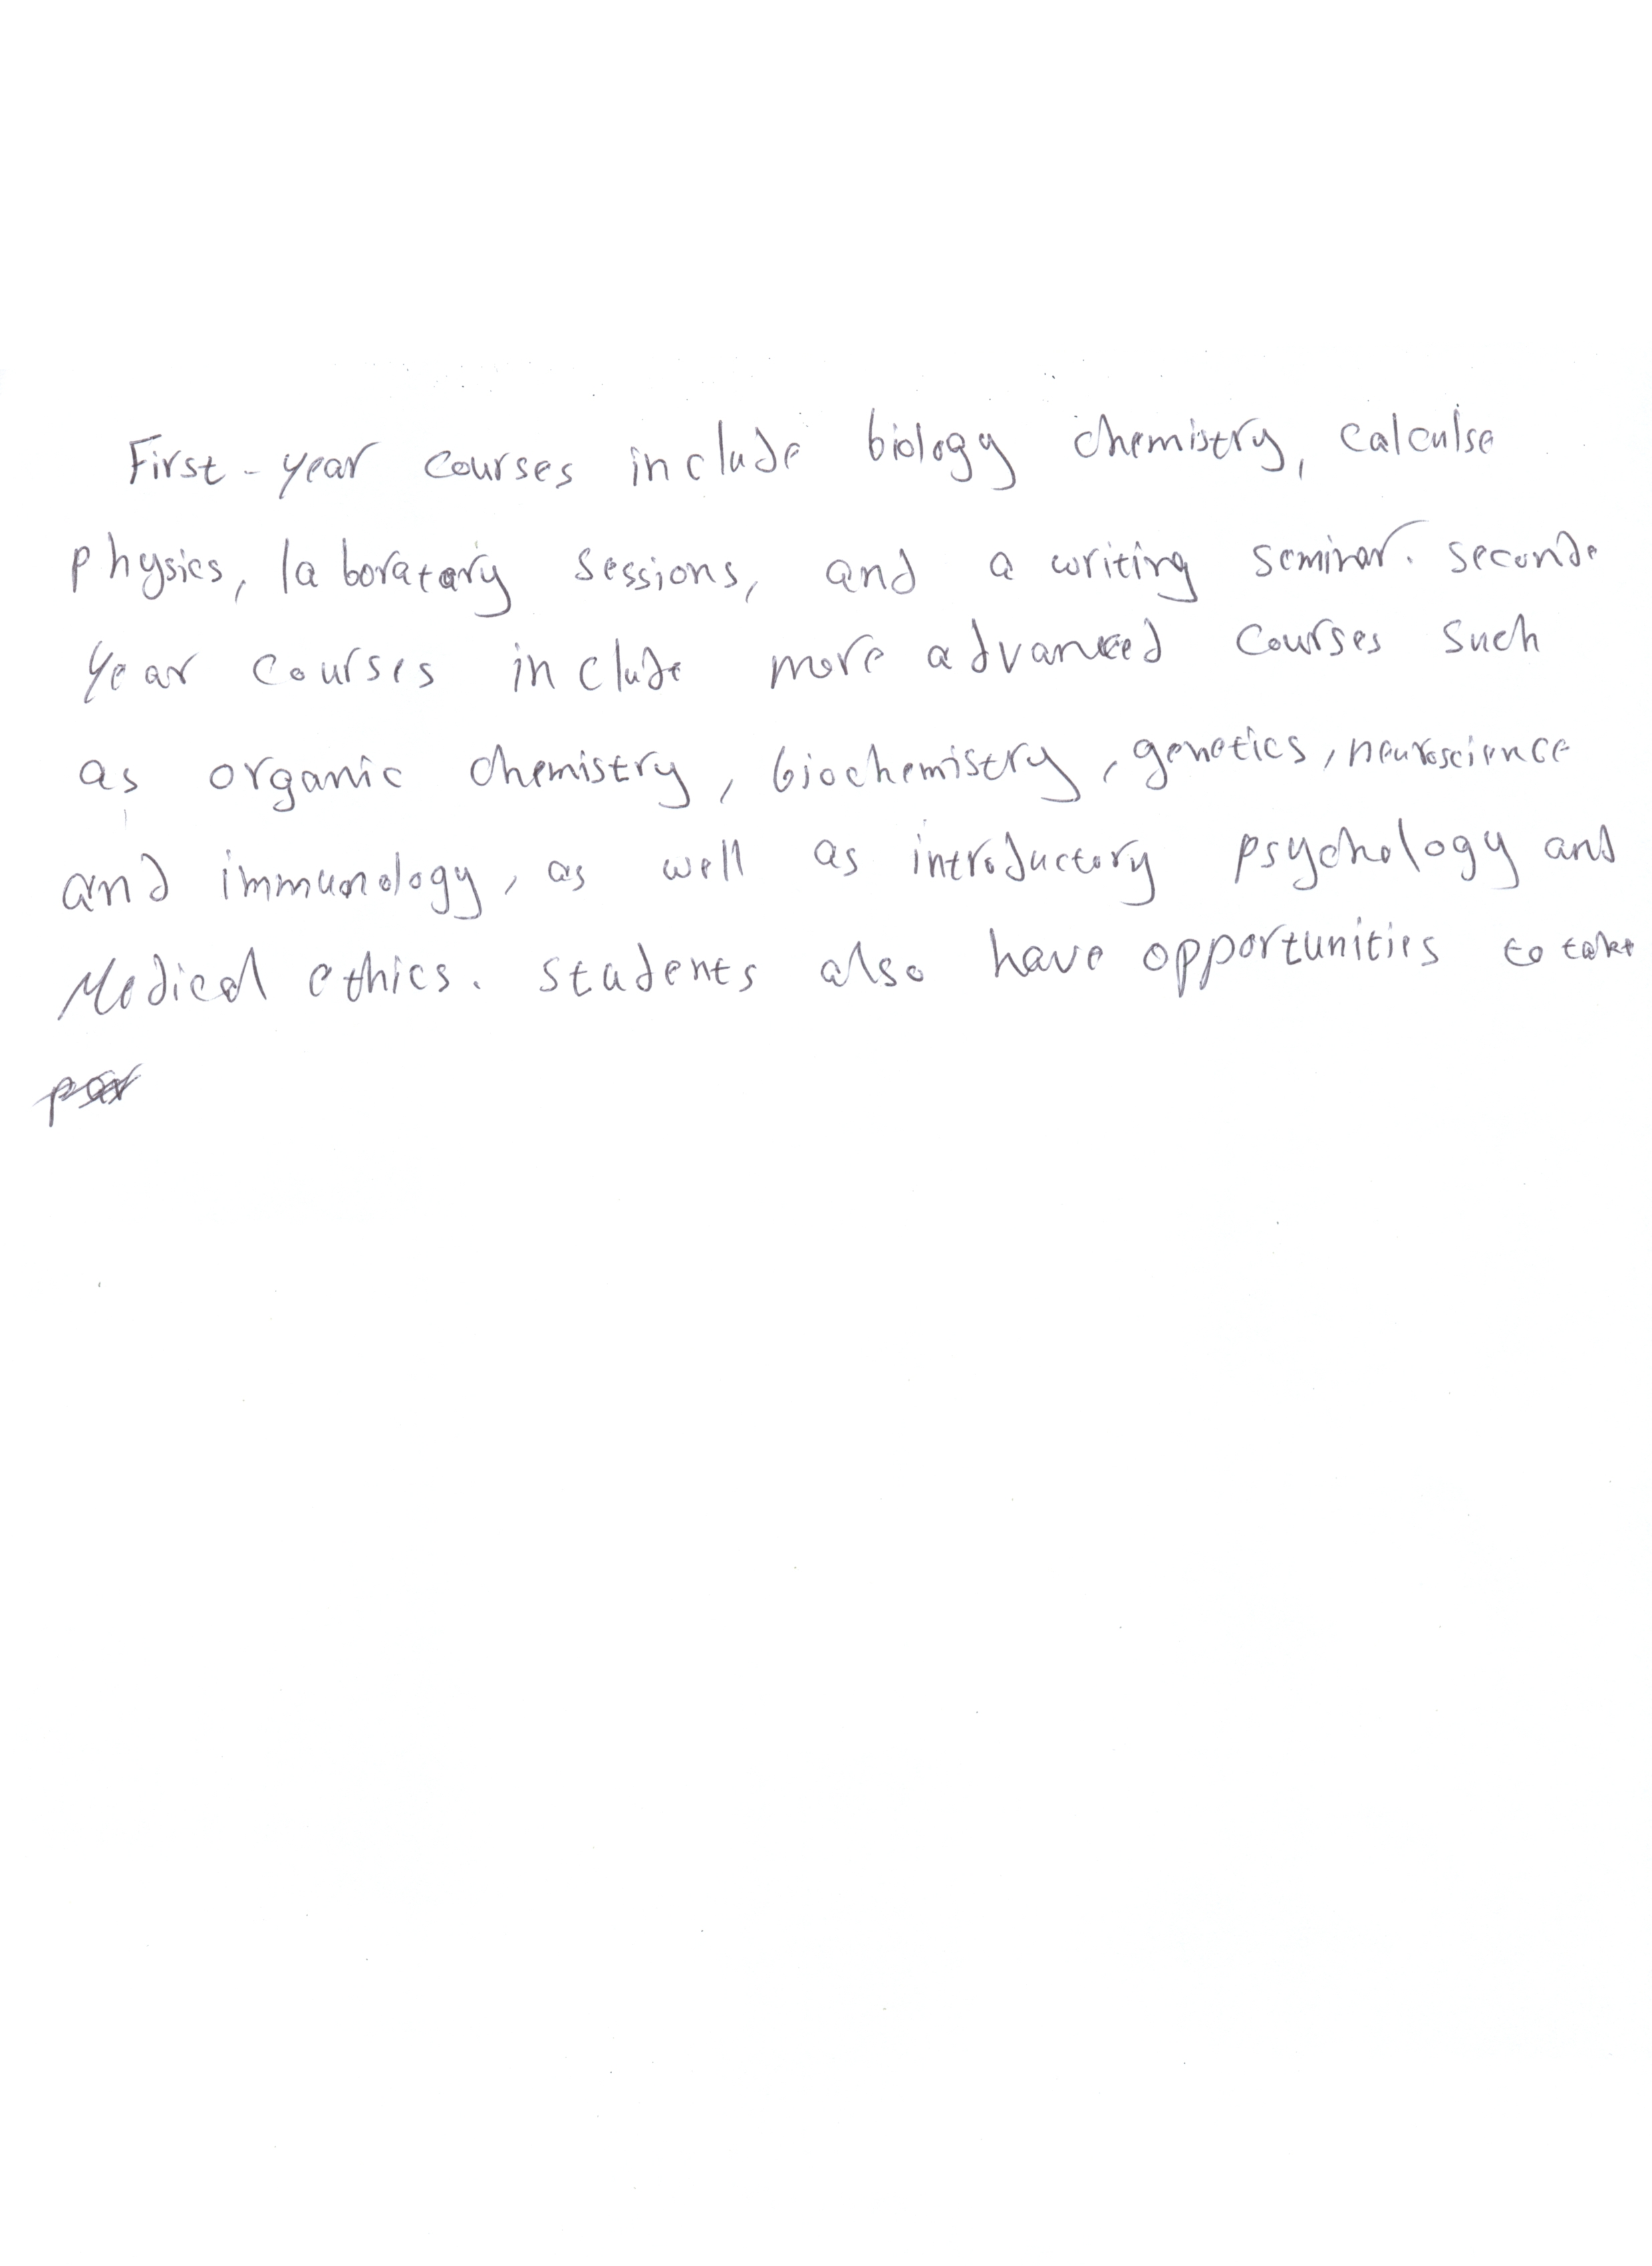 First-year courses include biology chemistry, calculse
physics, laboratary sessions, and a writing seminar. seconde
year courses include more advanced courses such
as organic chemistry, biochemistry, genetics, neuroscience
and immunology, as well as introductory psychology and
Medical ethics. students also have opportunities to take